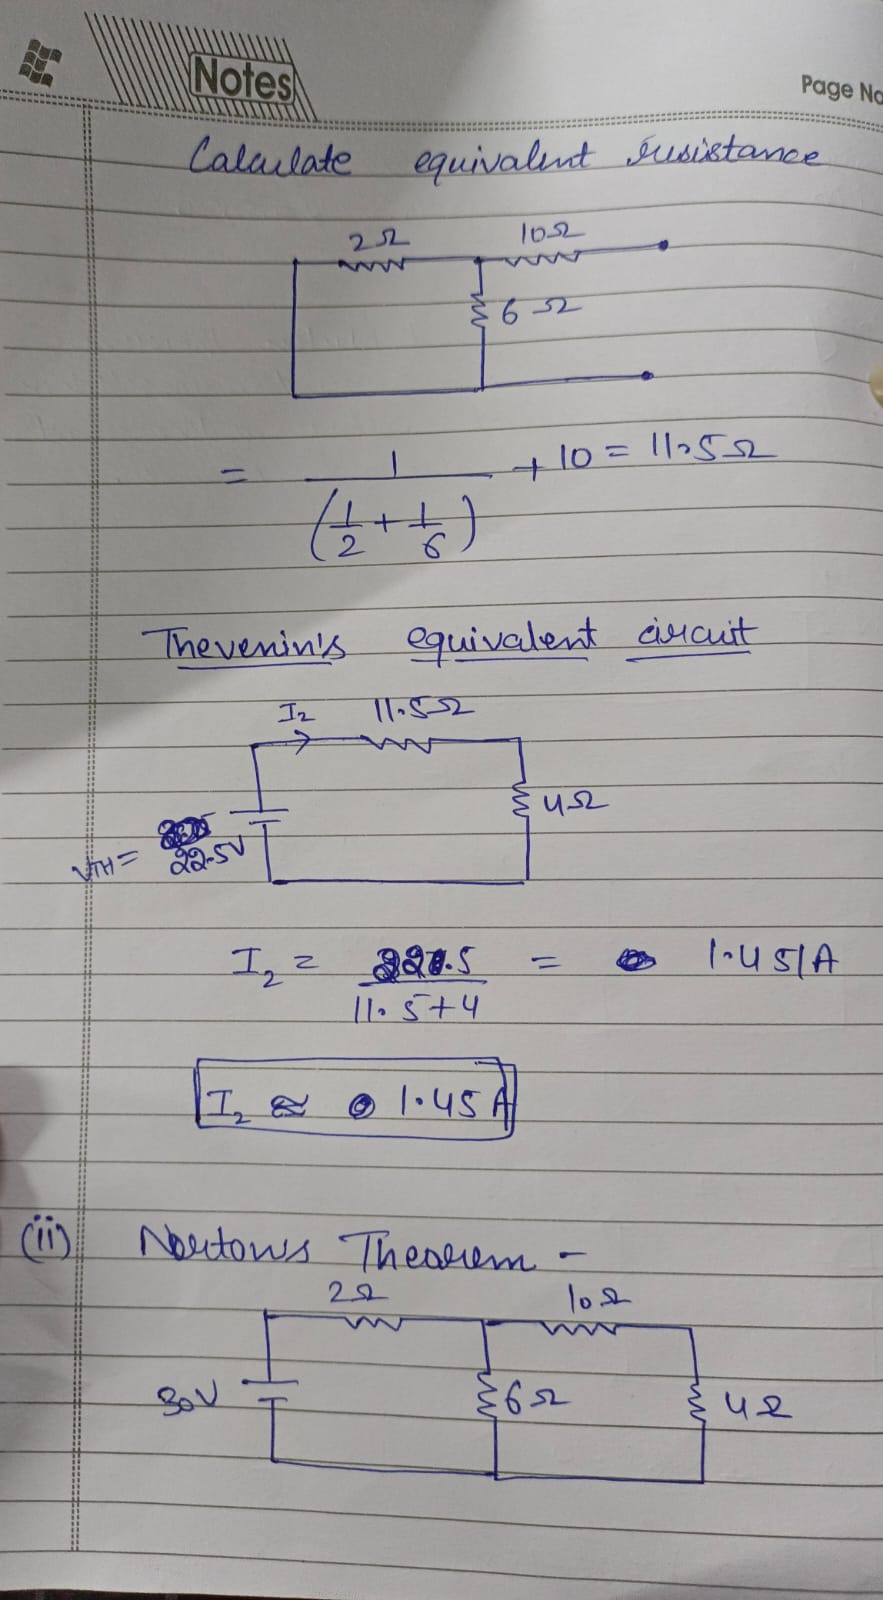 Notes
Page No
Calculate equivalent resistance
2Ω 10Ω
6Ω
= 1/(1/2 + 1/6) + 10 = 11.5Ω
Thevenin's equivalent circuit
I₂ 11.5Ω
4Ω
VTH = 22.5V
I₂ = 22.5/11.5+4 = 1.451A
I₂ ≈ 1.45A
(ii) Nortons Thearem -
2Ω 10Ω
30V 6Ω 4Ω